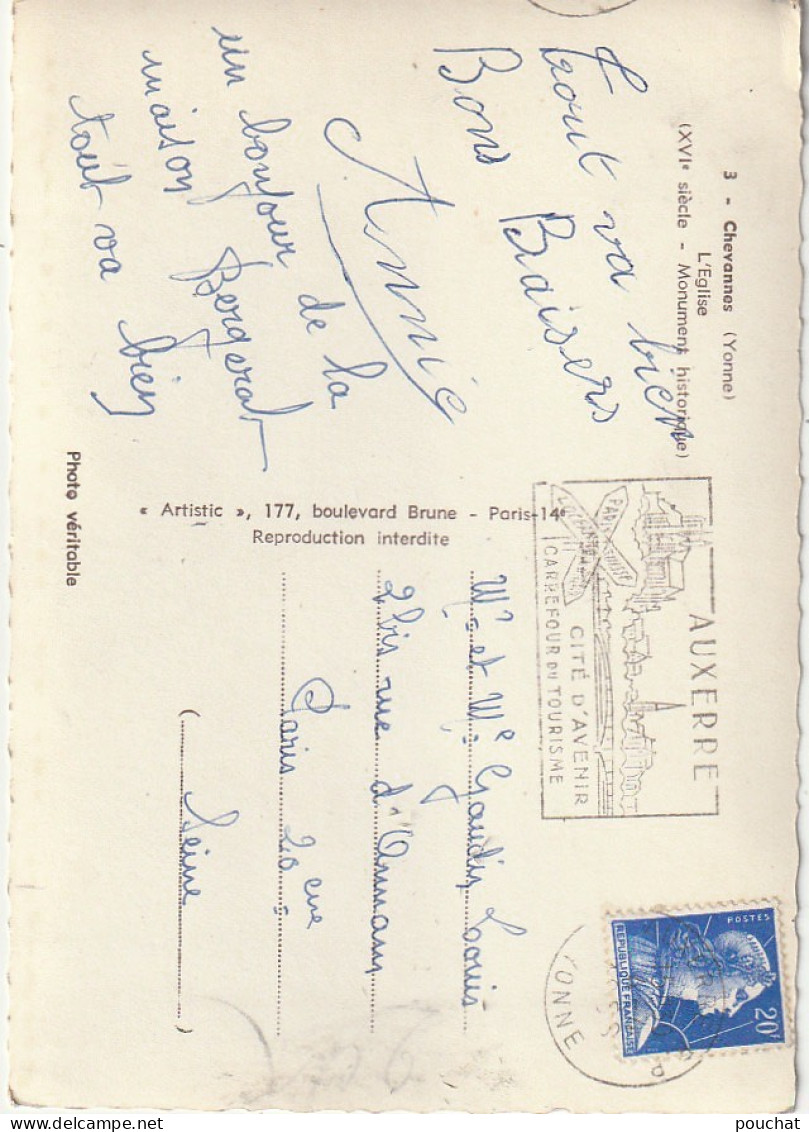 3 - Chevannes (Yonne)
L'Eglise
(XVIe siècle - Monument historique)
Tout va bien
Bons Baisers
Annie
un bonjour de la
maison Bergerat
tout va bien
Photo véritable
« Artistic », 177, boulevard Brune - Paris-14e
Reproduction interdite
AUXERRE
CITÉ D'AVENIR
CARREFOUR DU TOURISME
POSTES
20F
REPUBLIQUE FRANÇAISE
YONNE
Mr et Me Gaudin Louis
2 bis rue d'Annam
Paris 20 eme
(Seine)
pouchat